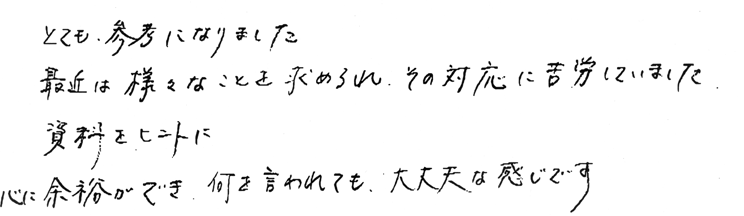 とても、参考になりました
最近は様々なことを求められ、その対応に苦労していました。
資料をヒントに
心に余裕ができ、何を言われても、大丈夫な感じです